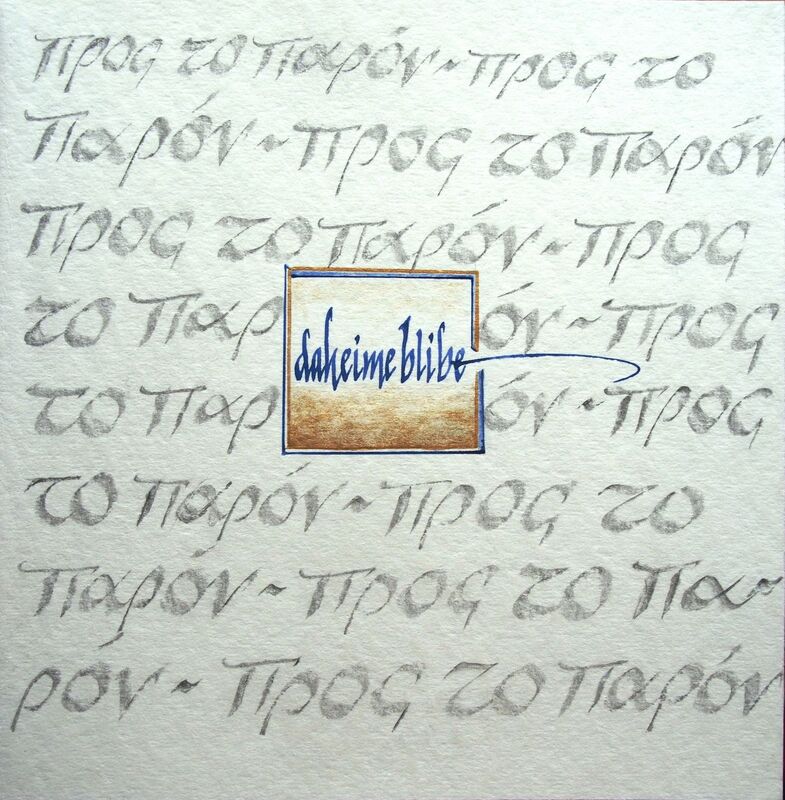 προς το παρόν ~ προς το
παρόν ~ προς το παρόν
προς το παρόν ~ προς
το παρ όν ~ προς
daheime blibe
το παρ όν ~ προς
το παρόν ~ προς το
παρόν ~ προς το πα~
ρόν ~ προς το παρόν